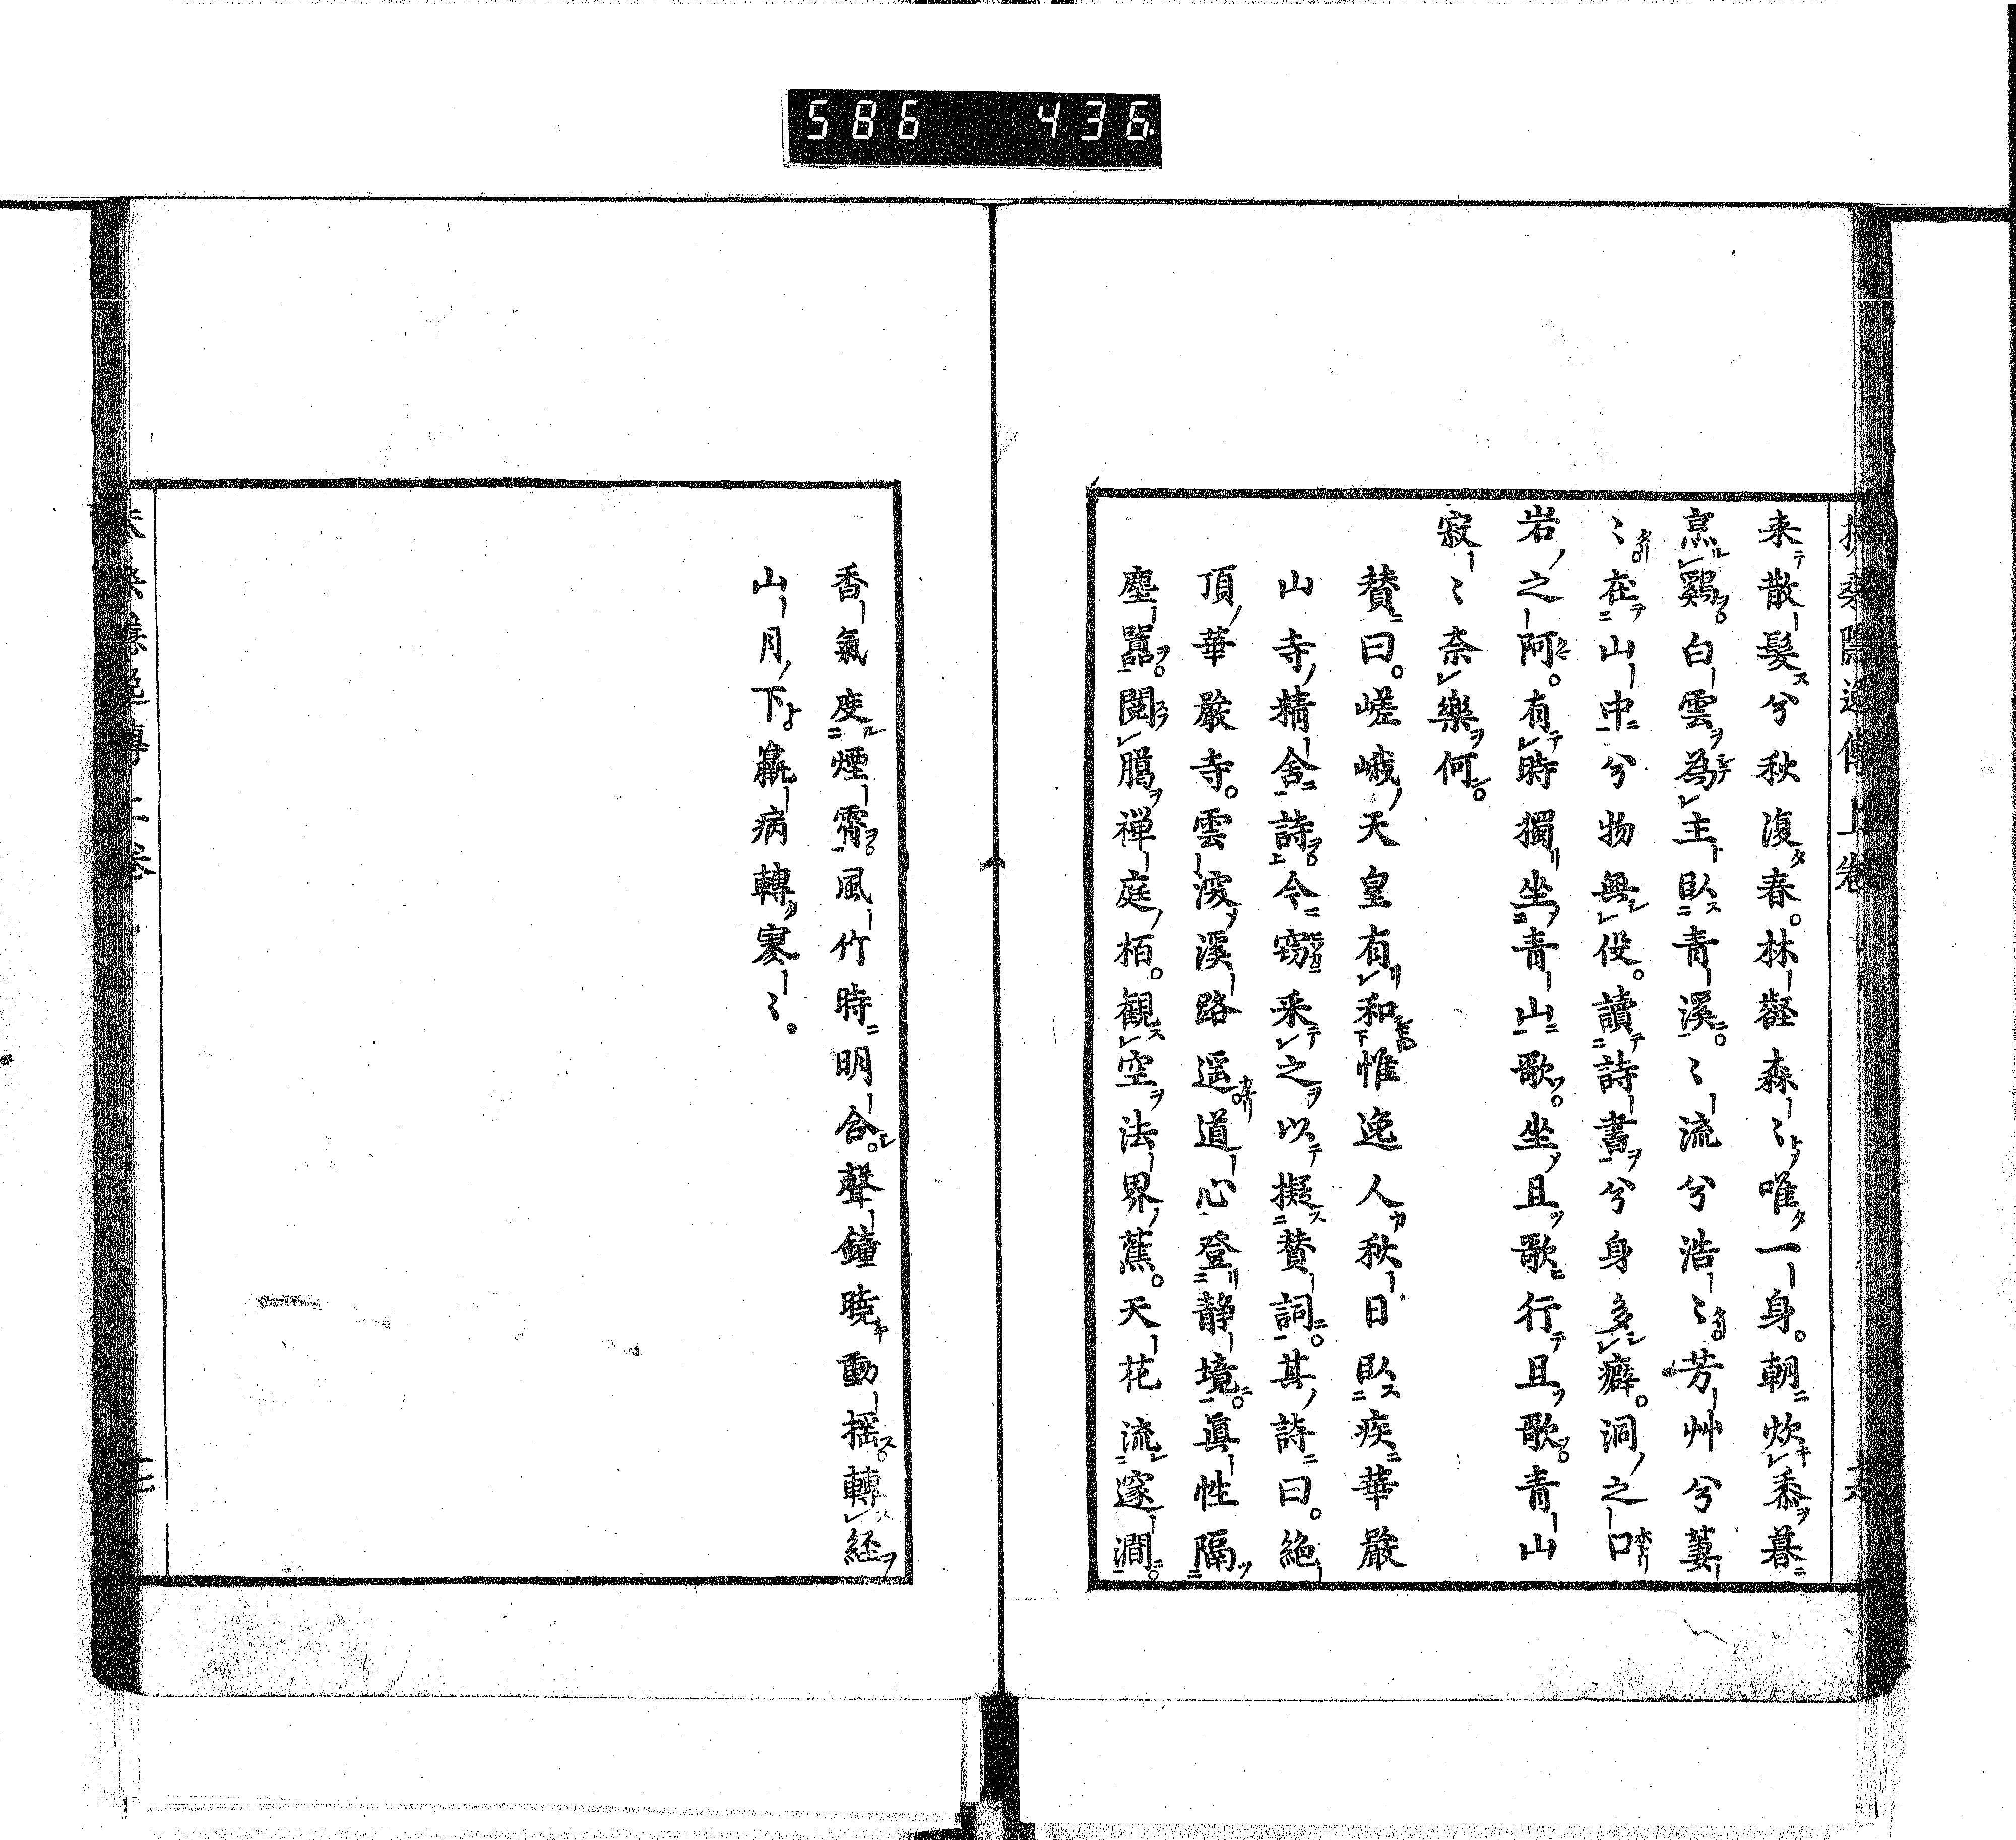 586 436
扶桑隠逸傳上卷
来散髪兮秋復春。林壑森〻唯一身。朝炊黍暮
烹鷄。白雲為主臥青溪。〻流兮浩〻芳艸兮萋
〻在山中兮物無役。讀詩書兮身多癖。洞之口
岩之阿。有時獨坐青山歌。坐且歌行且歌青山
寂〻奈樂何。
賛曰。嵯峨天皇有和惟逸人秋日臥疾華嚴
山寺精舎詩今窃采之以擬賛詞。其詩曰。絶
頂華嚴寺。雲深溪路遥道心登静境。眞性隔
塵囂。閲臈禅庭栢。観空法界蕉。天花流邃澗。
香氣度煙霄。風竹時明合。聲鐘暁動揺轉経
山月下。羸病轉寥〻。